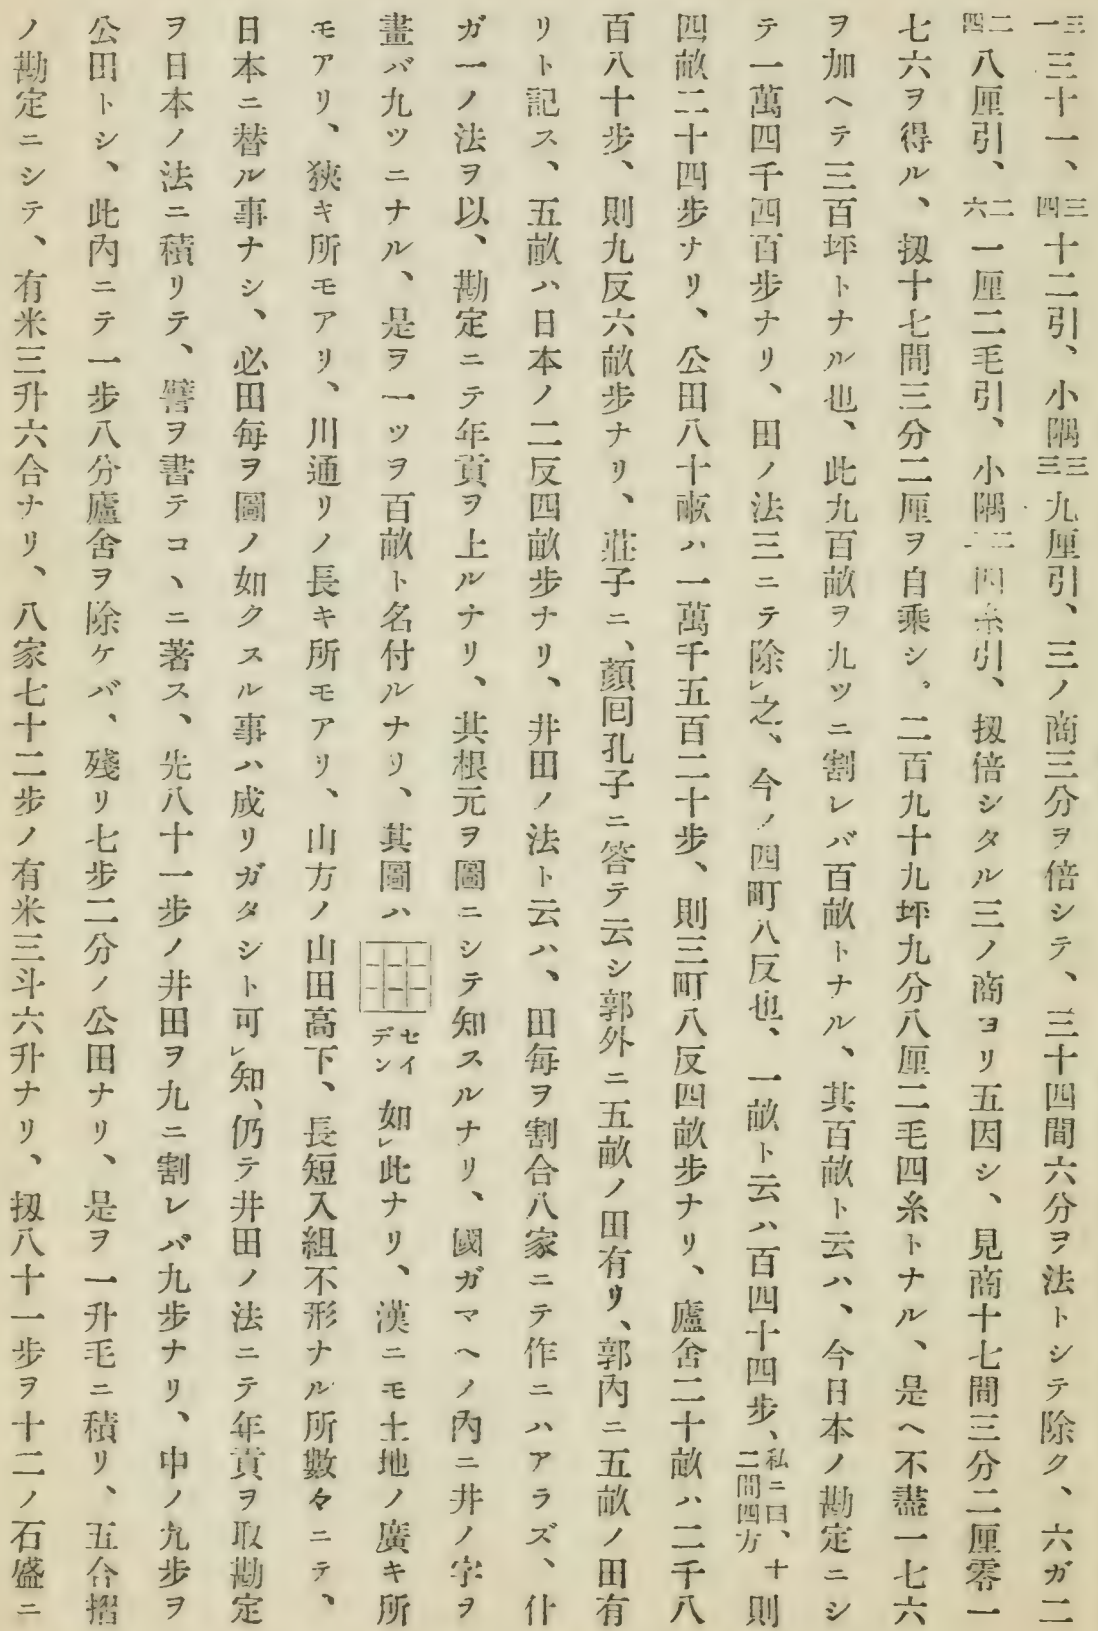 三一三十一、三四十二引、小隅三三九厘引、三ノ商三分ヲ倍シテ、三十四間六分ヲ法トシテ除ク、六ガ二
二四八厘引、二六一厘二毛引、小隅二二四糸引、扨倍シタル三ノ商ヨリ五因シ、見商十七間三分二厘零一
七六ヲ得ル、扨十七間三分二厘ヲ自乘シ、二百九十九坪九分八厘二毛四糸トナル、是ヘ不盡一七六
ヲ加ヘテ三百坪トナル也、此九百畝ヲ九ツニ割レバ百畝トナル、其百畝ト云ハ、今日本ノ勘定ニシ
テ一萬四千四百步ナリ、田ノ法三ニテ除㆑之、今ノ四町八反也、一畝ト云ハ百四十四步、私ニ曰、十二間四方則
四畝二十四步ナリ、公田八十畝ハ一萬千五百二十步、則三町八反四畝步ナリ、廬舍二十畝ハ二千八
百八十步、則九反六畝步ナリ、莊子ニ、顏囘孔子ニ答テ云シ郭外ニ五畝ノ田有リ、郭內ニ五畝ノ田有
リト記ス、五畝ハ日本ノ二反四畝步ナリ、井田ノ法ト云ハ、田每ヲ割合八家ニテ作ニハアラズ、什
ガ一ノ法ヲ以、勘定ニテ年貢ヲ上ルナリ、其根元ヲ圖ニシテ知スルナリ、國ガマヘノ內ニ井ノ字ヲ
畫バ九ツニナル、是ヲ一ツヲ百畝ト名付ルナリ、其圖ハセイデン如㆑此ナリ、漢ニモ土地ノ廣キ所
モアリ、狹キ所モアリ、川通リノ長キ所モアリ、山方ノ山田高下、長短入組不形ナル所數々ニテ、
日本ニ替ル事ナシ、必田每ヲ圖ノ如クスル事ハ成リガタシト可㆑知、仍テ井田ノ法ニテ年貢ヲ取勘定
ヲ日本ノ法ニ積リテ、譬ヲ書テコヽニ著ス、先八十一步ノ井田ヲ九ニ割レバ九步ナリ、中ノ九步ヲ
公田トシ、此內ニテ一步八分廬舍ヲ除ケバ、殘リ七步二分ノ公田ナリ、是ヲ一升毛ニ積リ、五合摺
ノ勘定ニシテ、有米三升六合ナリ、八家七十二步ノ有米三斗六升ナリ、扨八十一步ヲ十二ノ石盛ニ